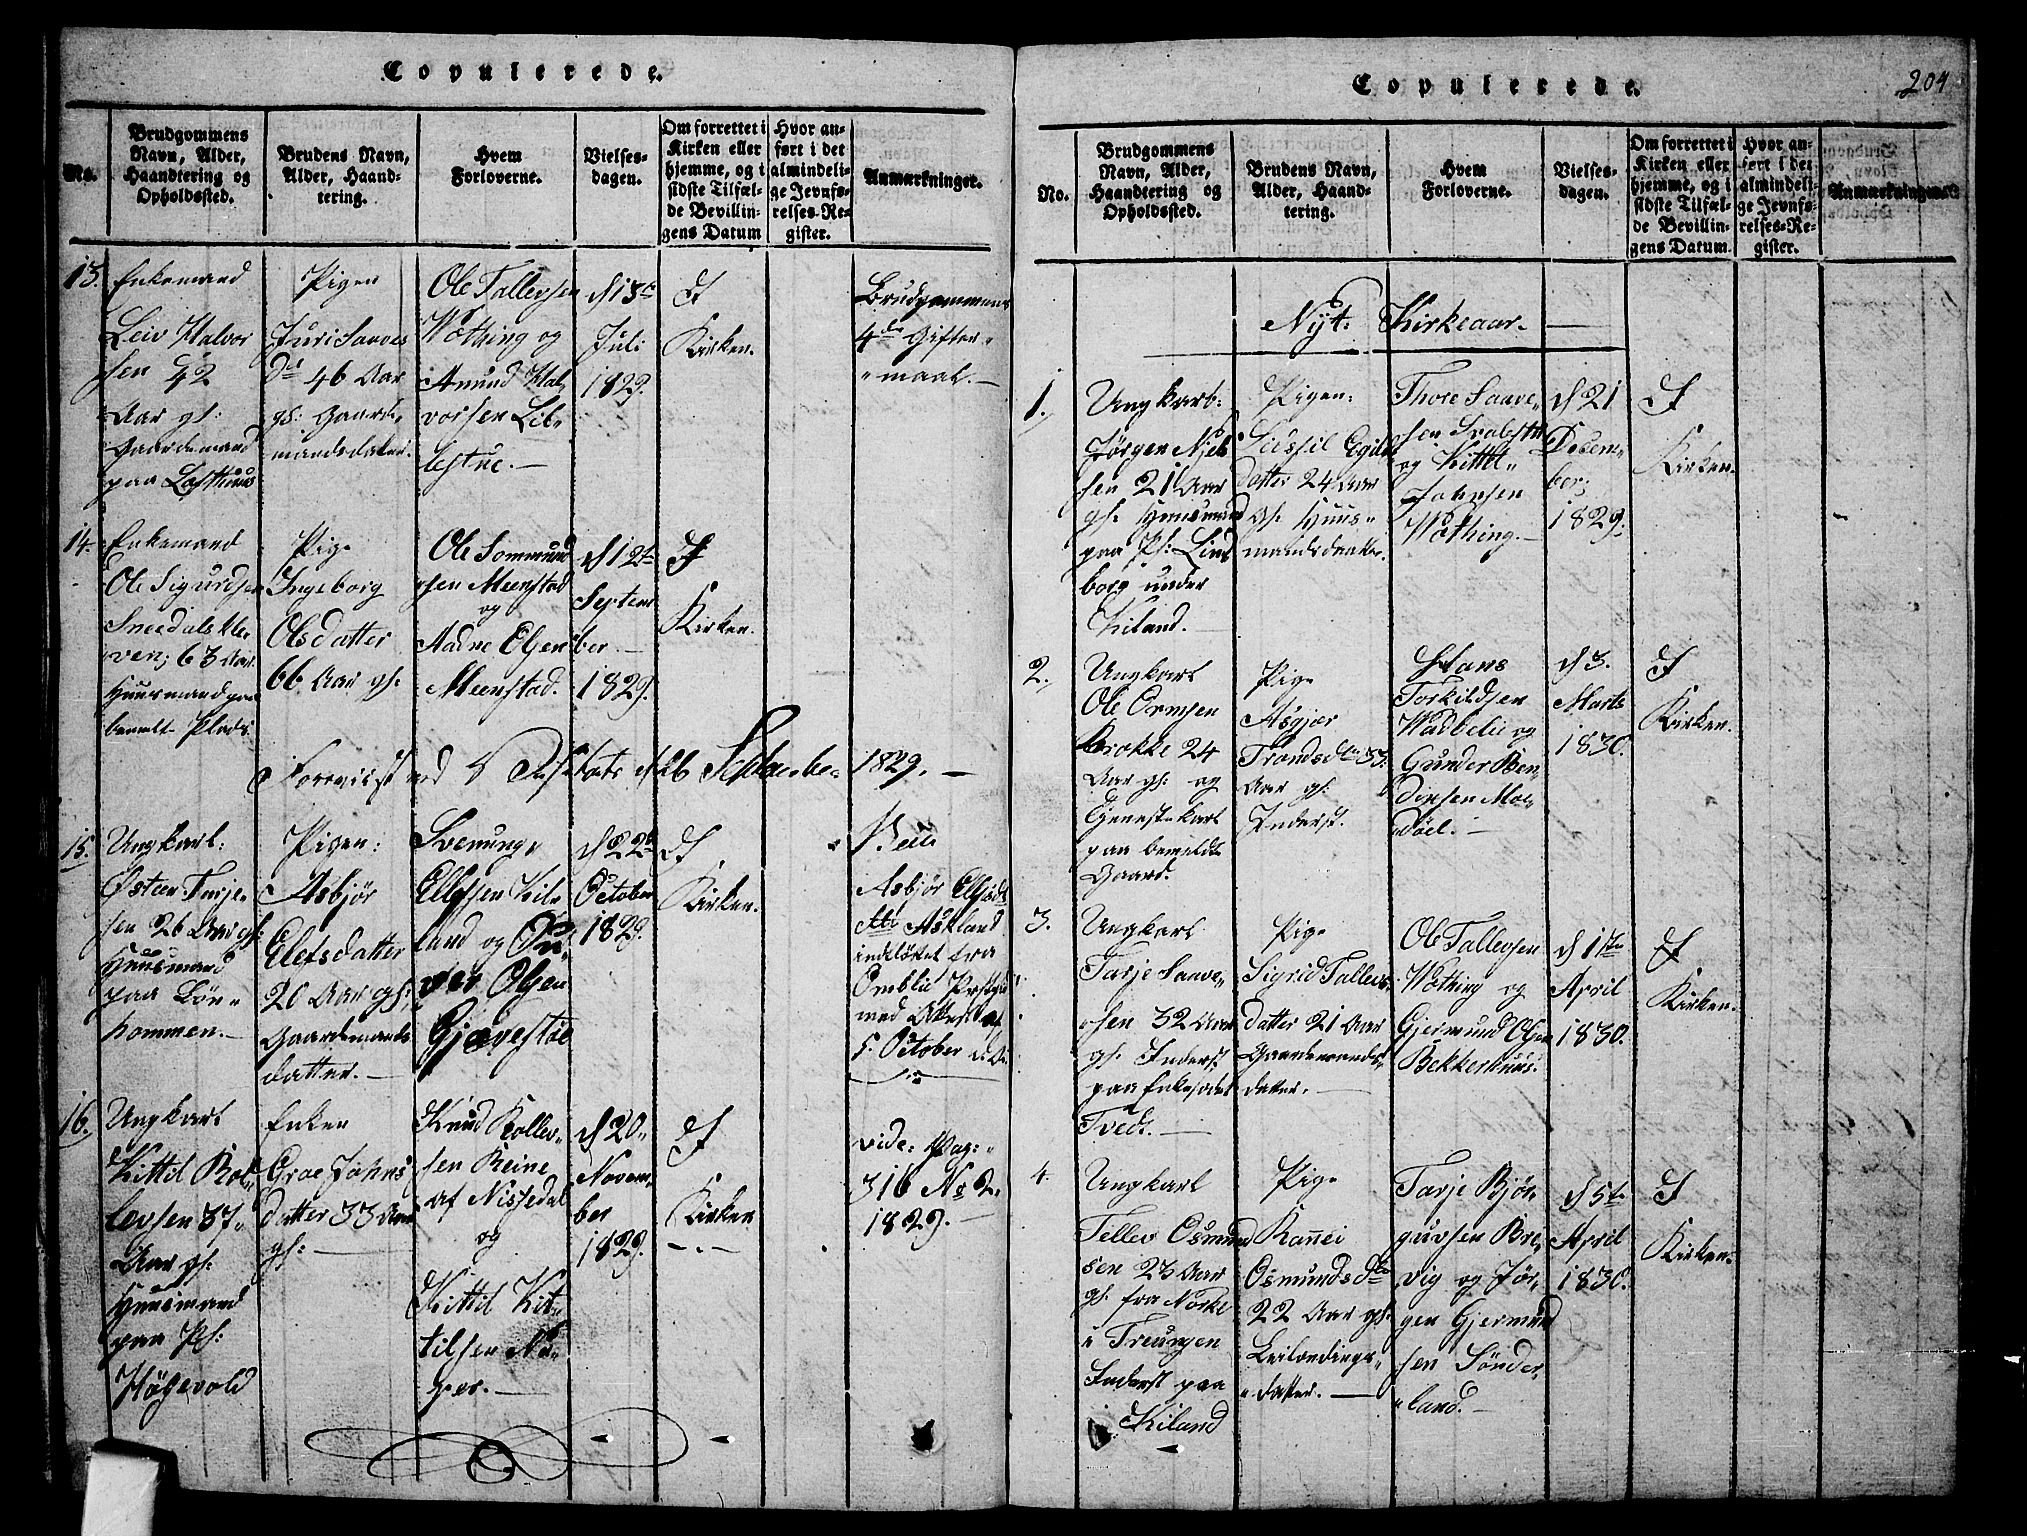 Copulerede.
No.
Brudgommens
Navn, Alder,
Haandtering og
Opholdssted.
Brudens Navn,
Alder, Haand-
tering.
Hvem
Forloverne.
Vielses-
dagen.
Om forrettet i
Kirken eller
hjemme, og i
sidste Tilfæl-
de Bevillin-
gens Datum
Hvor an-
ført i det
almindeli-
ge Jevnfø-
relses-Re-
gister.
Anmærkninger.
13.
Enkemand
Leiv Halvor
sen 42
Aar gl:
Gaardemand
paa
Pigen
Juri Saaves
Dr 46 Aar
gl: Gaarde
mandsdater.
Ole Tallevsen
Wothing og
Amund Hal
vorsen Lib
lestue.
d 13de
Juli
1829.
I
Kirken.
Brudgommens
4de Gifter
maal.
14.
Enkemand
Ole Sigurdsen
Sneedalskle
ven; 63 Aar
Huusmand paa
bemelt Plads.
Pige
Ingeborg
Olsdatter
66 Aar gl:
Ole Sommund
sen Meenstad
og
Aadne Olsen
Meenstad.
d 12te
Septem
ber
1829.
I
Kirken.
Foreviist ved
d 26 September 1829.
15.
Ungkarl:
Østen Tarje
sen 26 Aar gl:
Huusmand
paa Løn
hommen.
Pigen:
Asbjør
Elefsdatter
20 Aar gl:
Gaardemands
datter.
Svenung
Ellefsen Kil
land og
ver Olsen
Gjævestøl
d 22de
October
1829.
I
Kirken.
Asbjør Elefsdt
Askland
indløset fra
Omblie Prstgjd
med Attest af
5. October
16.
Ungkarl
Kittil Rol
levsen 37
Aar gl:
Huusmand
paa Pl:
Høgevold
Enken
Groe Johns
datter 33 Aar
gl:
Knud Rollev
sen Reine
af Nissedal
og
Kittil Kit
tilsen
d 20
Novem
ber
1829.
I
Kirken
vide: Pag:
316 No 2.
1829.
Copulerede.
204
No.
Brudgommens
Navn, Alder,
Haandtering og
Opholdssted.
Brudens Navn,
Alder, Haand-
tering.
Hvem
Forloverne.
Vielses-
dagen.
Om forrettet i
Kirken eller
hjemme, og i
sidste Tilfæl-
de Bevillin-
gens Datum.
Hvor an-
ført i det
almindeli-
ge Jevnfø-
relses-Re-
gister.
Anmærkninger.
Nyt: Kirkeaar.
1.
Ungkarl:
Jørgen Niels
sen 21 Aar
gl: Huusmand
paa Pl: Lind
borg under
Kiland.
Pigen:
Lidssil Egils
datter 24 Aar
gl: Huus
mandsdaatter.
Thore Saave
sen
og Kittil
Johnsen
Wothing.
d 21
Decem
ber;
1829.
I
Kirken.
2.
Ungkarl
Ole Ormsen
Brokke 24
Aar gl: og
Tjenestekarl
paa bemeldte
Gaard.
Pige
Asgjær
Trondsdtr 33
Aar gl:
Inderst.
Hans
Torkildsen
Wadbelie og
Gunder Ben
dixsen Mol
døel.
d 3.
Marts
1830.
I
Kirken.
3.
Ungkarl
Tarje Saave
sen 32 Aar
gl: Inderst
paa Enkesædet
Tvedt.
Pige
Sigrid Tallevs
datter 21 Aar
Gaardemands
datter.
Ole Tallevsen
Wothing og
Gjermund Olsen
Bekkerhuus.
d 1ste
April
1830.
I
Kirken.
4.
Ungkarl
Tellev Osmund
sen 23 Aar
gl: fra Norke
i Treungen
Inderst paa
Kiland
Pige
Kannei
Osmundsdtr
22 Aar gl:
Leilændings
datter.
Tarje Bjør
guvsen Bre
vig og Jør
gen Gjermund
sen Sønder
land.
d 5te
April
1830.
I
Kirken.